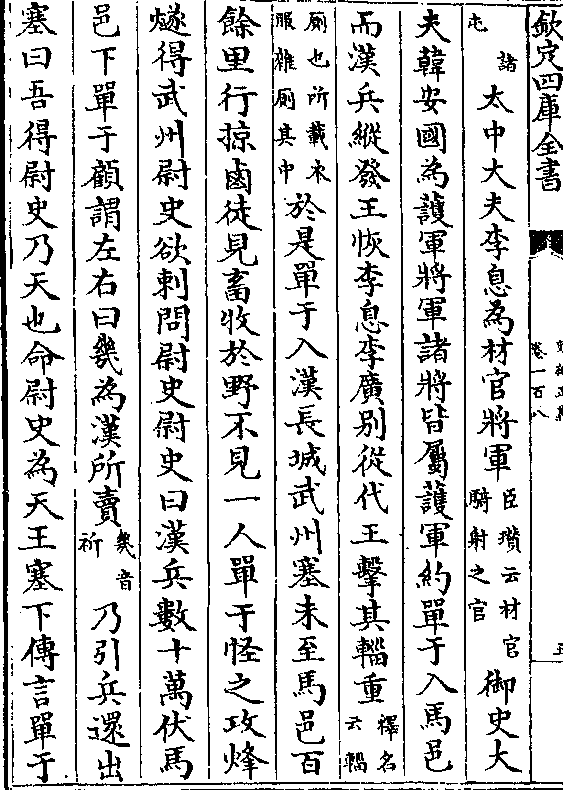 欽定四庫全書
卷一百八
五
諸屯太中大夫李息為材官將軍臣瓚云材官騎射之官御史大
夫韓安國為護軍將軍諸將皆屬護軍約單于入馬邑
而漢兵縱發王恢李息李廣別從代王擊其輜重釋名云輜
厠也所載衣服雜厠其中於是單于入漢長城武州塞未至馬邑百
餘里行掠鹵徒見畜牧於野不見一人單于怪之攻烽
燧得武州尉史欲刺問尉史尉史曰漢兵數十萬伏馬
邑下單于顧謂左右曰幾為漢所賣幾音祈乃引兵還出
塞曰吾得尉史乃天也命尉史為天王塞下傳言單于